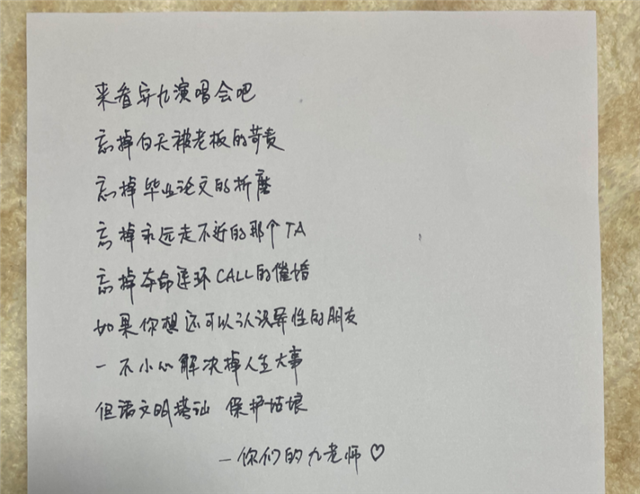 来看异九演唱会吧
忘掉白天被老板的苛责
忘掉毕业论文的折磨
忘掉永远走不近的那个TA
忘掉夺命连环CALL的催婚
如果你想还可以认识异性的朋友
一不小心解决掉人生大事
但请文明搭讪 保护姑娘
—你们的九老师♡